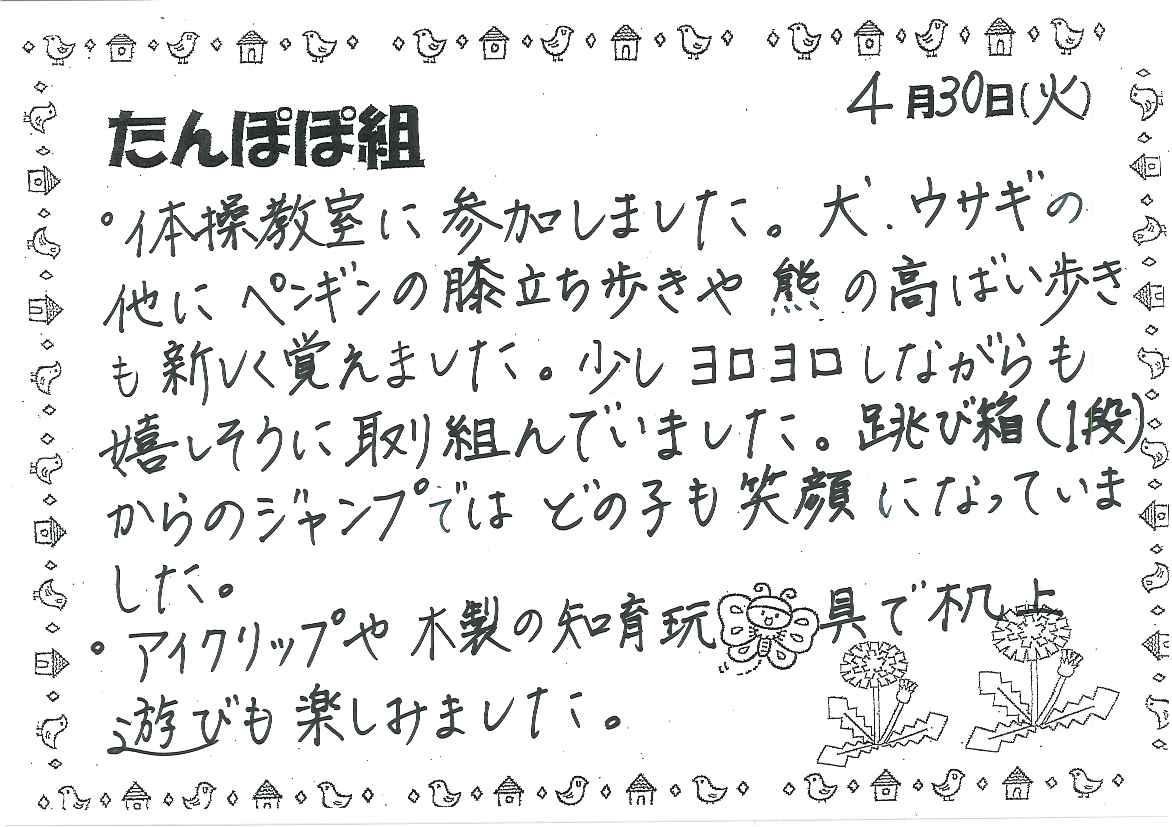 4月30日(火)
たんぽぽ組
。体操教室に参加しました。犬、ウサギの
他にペンギンの膝立ち歩きや熊の高ばい歩き
も新しく覚えました。少しヨロヨロしながらも
嬉しそうに取り組んでいました。跳び箱(1段)
からのジャンプではどの子も笑顔になっていま
した。
。アイクリップや木製の知育玩具で机上
遊びも楽しみました。